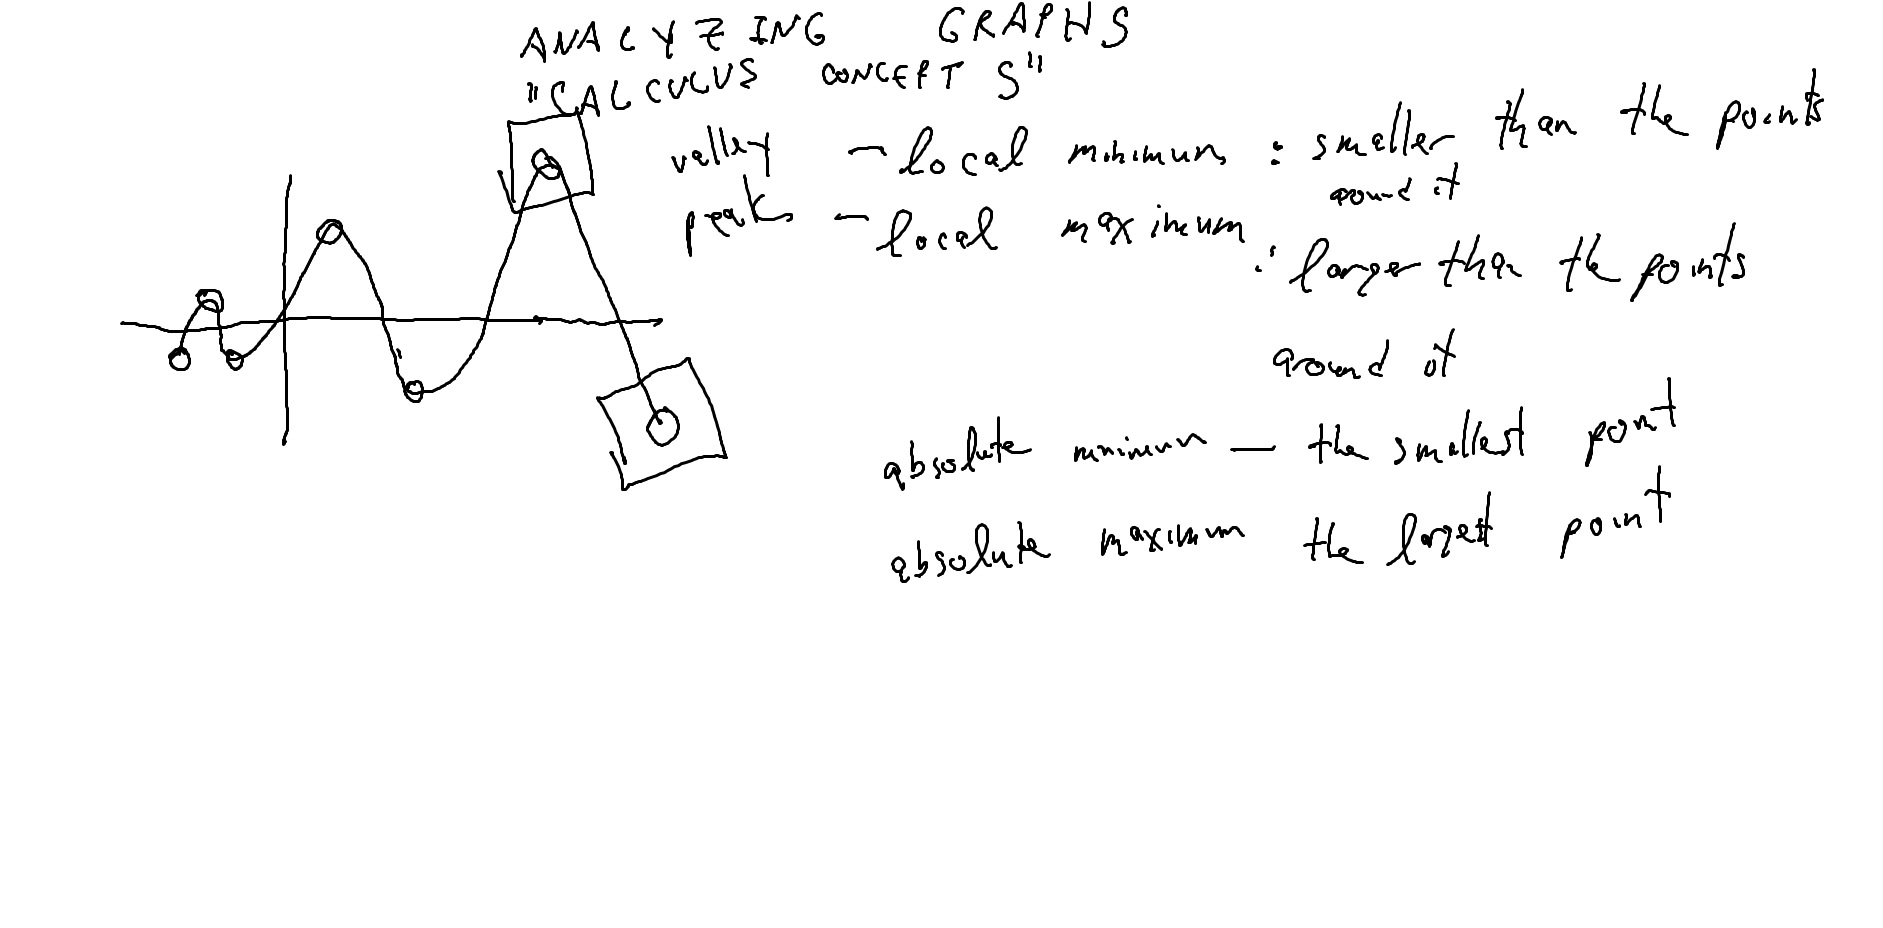 ANALYZING GRAPHS
"CALCULUS CONCEPTS"
valley - local minimum : smaller than the points
around it
peak - local maximum : larger than the points
around it
absolute minimum — the smallest point
absolute maximum the largest point